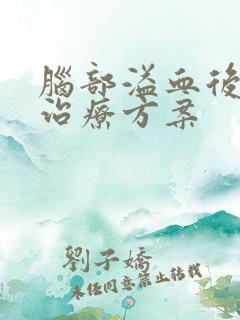 腦部溢血後
治療方案
劉子嬌
未经同意禁止转载